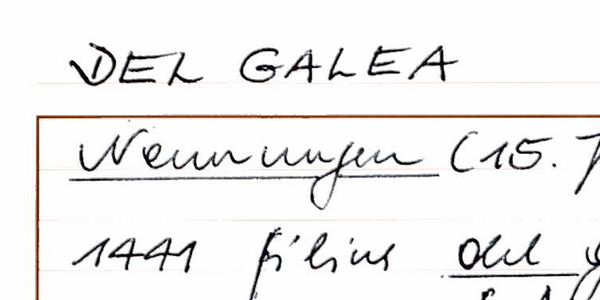 DEL GALEA
Nennungen (15. J
1441 filius del g